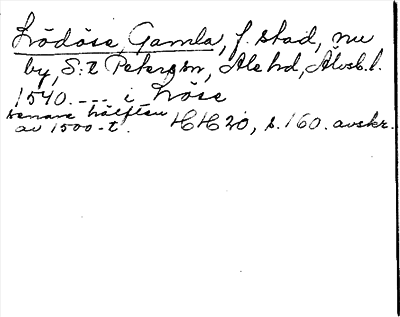 Lödöse, Gamla, f. stad, nu
by, S:t Peters sn, Ale hd, Älvsb. l.
1540. --- i Löse
senare hälften
av 1500-t. HH 20, s. 160. avskr.